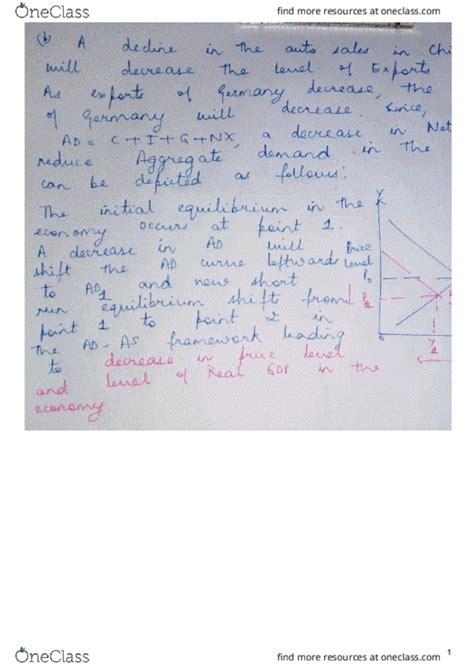 OneClass
find more resources at oneclass.com
(b) A decline in the auto sales in Chi
will decrease the level of Exports
As exports of Germany decrease, the
of Germany will decrease. Since,
AD = C + I + G + NX, a decrease in Net
reduce Aggregate demand in the
can be depicted as follows:
The initial equilibrium in the
economy occurs at point 1.
A decrease in AD will
shift the AD curve leftward
to AD1 and new short
run equilibrium shift from
point 1 to point 2 in
the AD-AS framework leading
to decrease in price level
and level of Real GDP in the
economy.
Price
Level
P0
P2
Y2
OneClass
find more resources at oneclass.com
1